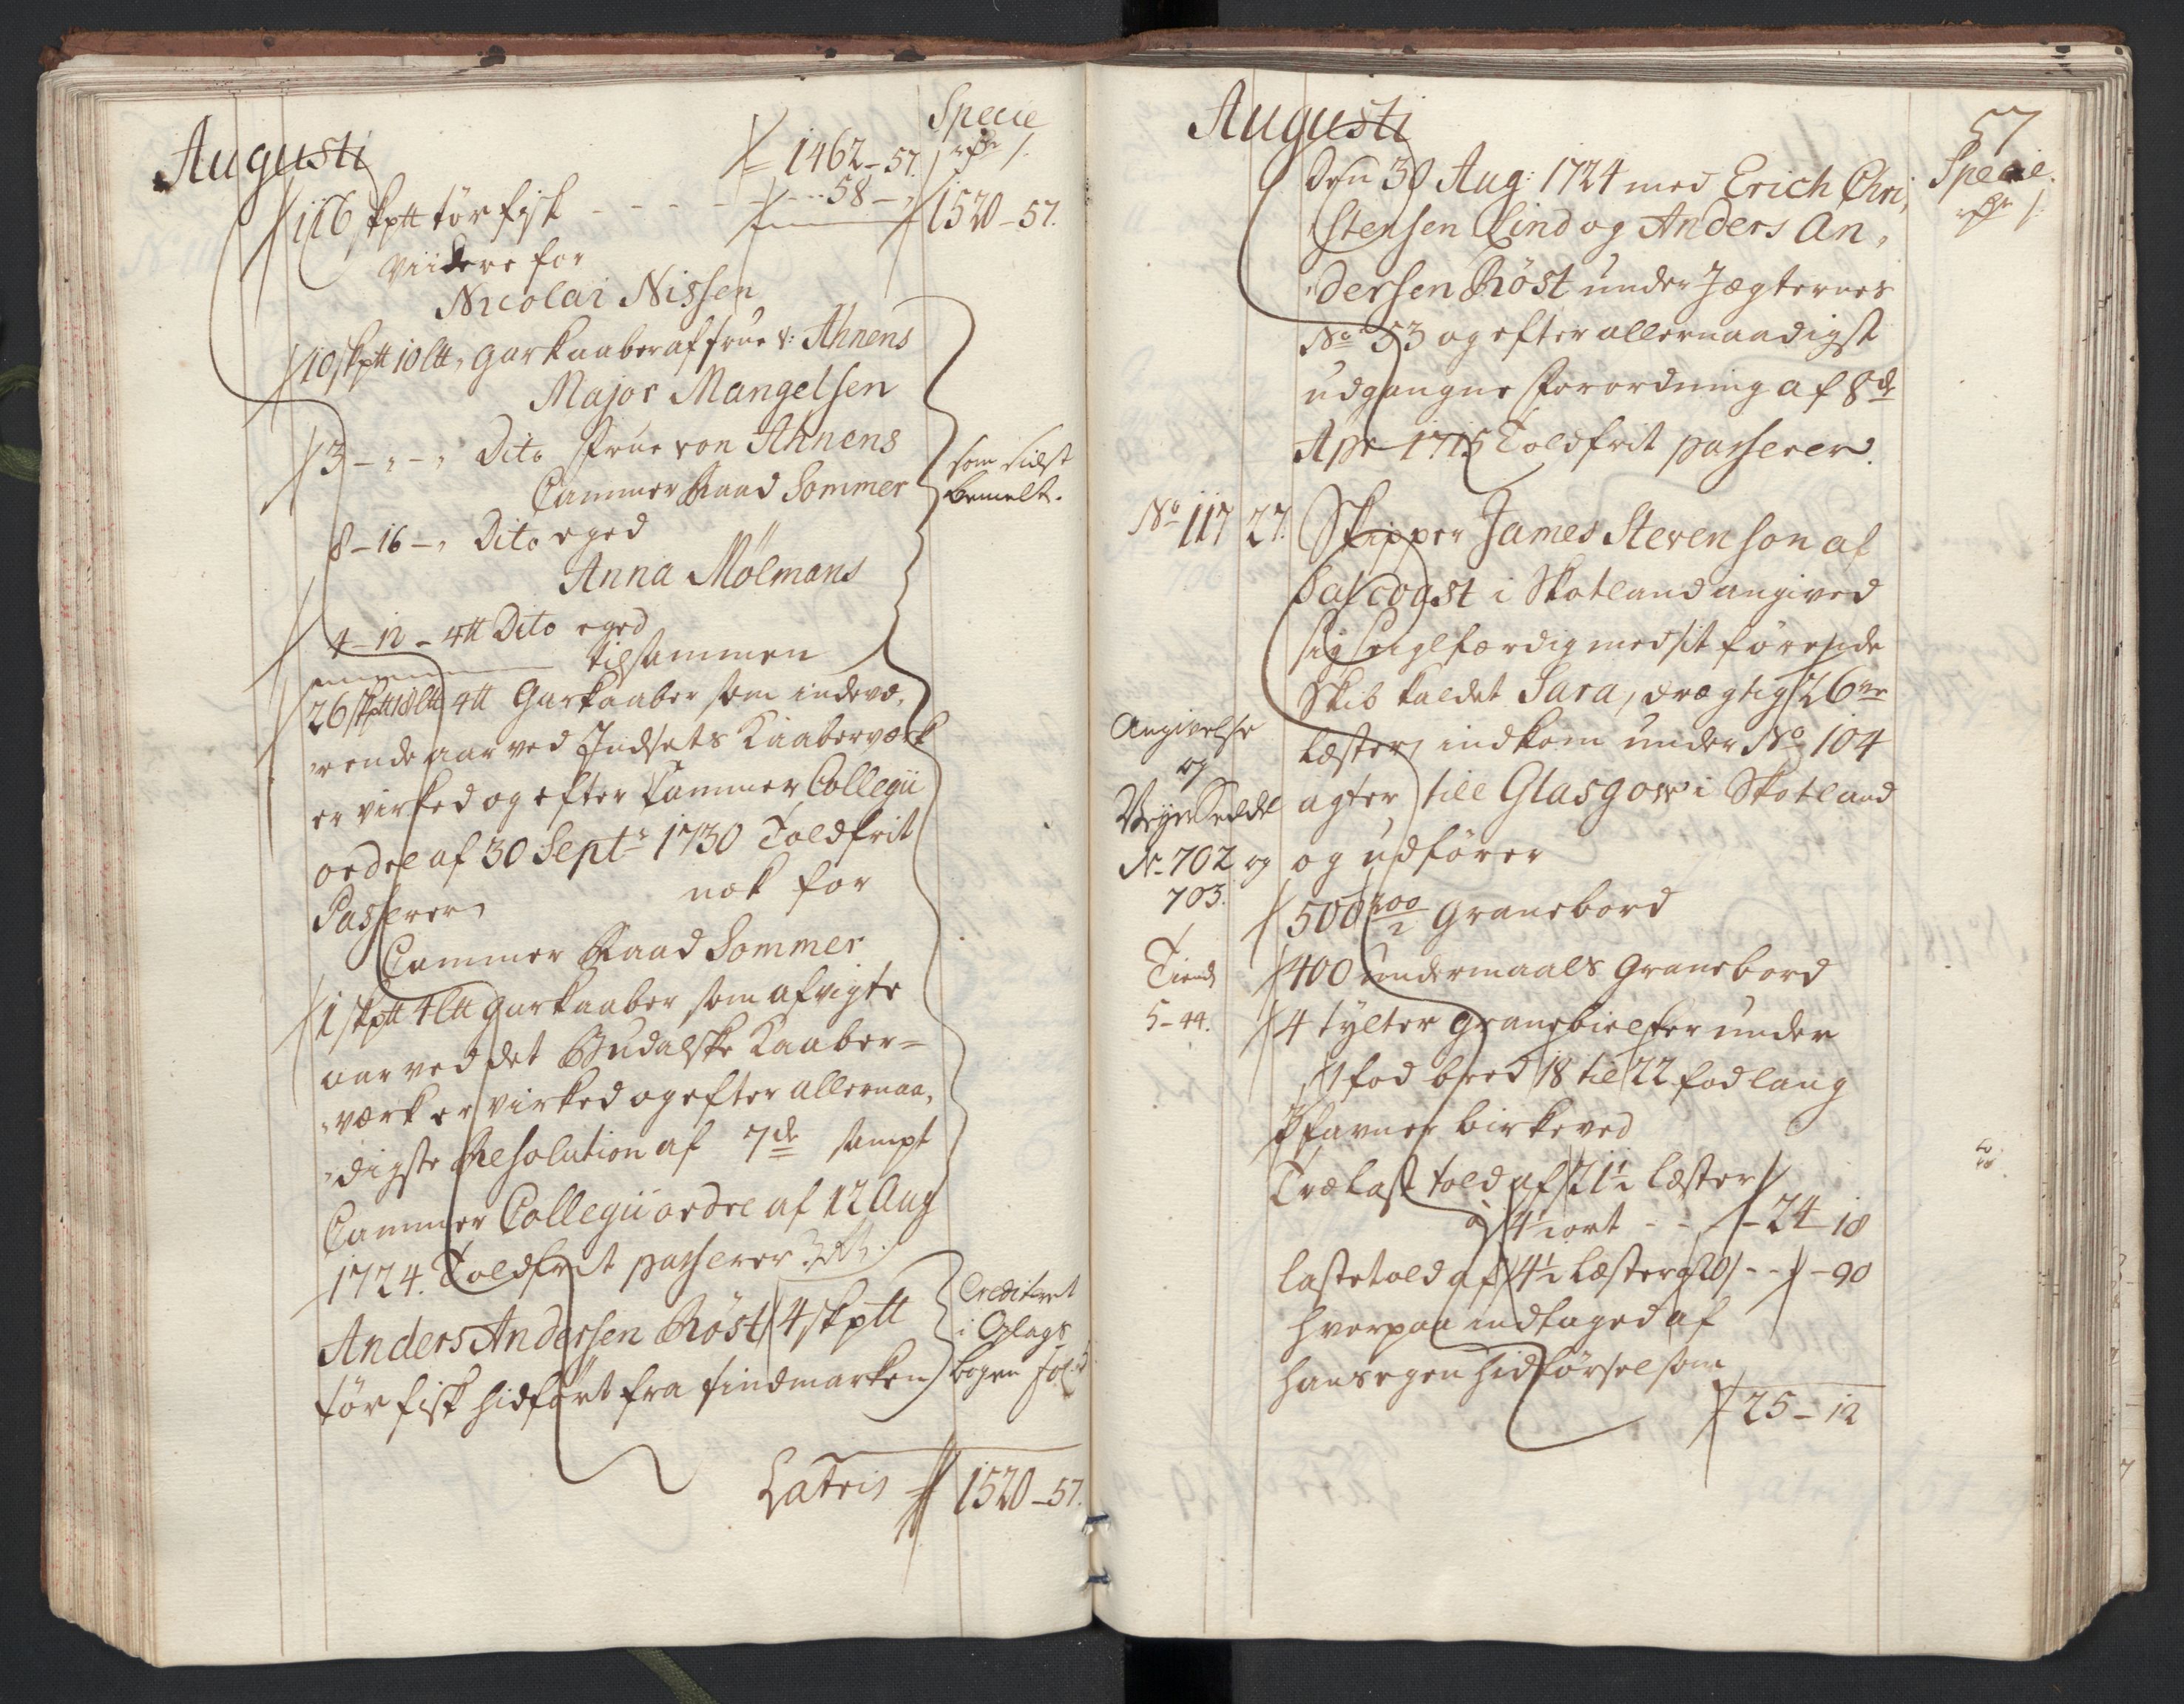 Augusti
Specie
rdr /.
1462 - 57.
116 skptt tör fisk - - - - 58 - 1520 - 57.
Viidere for
Nicolai Nissen
10 skptt 10 ltt, garkaaber af frue v: Ahnens
Major Mangelsen
3 - , - , Dito frue von Ahnens
Cammer Raad Sommer
som sidst
bemelt.
8 - 16 - , Dito eged
Anna Mölmans
4 - 12 - 4 tt Dito eged
tilsammen
26 skptt 18 ltt 4 tt Garkaaber som indevæ,
rende aar ved Indsets Kaaberværk
er virked og efter Cammer Collegii
ordre af 30 Sept: 1730 Toldfrit
Passerer
nok for
Cammer Raad Sommer
1 skptt 4 ltt garkaaber som afvigte
aar ved det Budalske Kaaber=
værk er virked og efter allernaa,
digste Resolution af 7de sampt
Cammer Collegii ordre af 12 Aug
1724. Toldfrit passerer
Anders Andersen Röst 4 skptt
tör fisk hidfört fra findmarken
Crediteret
i Oplags
bogen fol
Latris 1520 - 57.
Augusti
57
Specie.
rdr /.
den 30 Aug: 1724 med Erich Chri,
stensen Lind og Anders An,
dersen Röst under Jægternes
No 53 og efter allernaadigst
udgangne forordning af 8de
Apr 1715 Toldfrit passerer.
No 117 27. Skipper James Stevenson af
Salcoast i Skotland angived
sig seiglfærdig med sit förende
Skib kaldet Sara, drægtig 26 ne
læster, indkom under No 104
agter till Glasgow i Skotland
og udförer
Angivelse
og
Veyer Seddel
No 702 og
703.
Tiende
5 - 44.
500 200/2 Granebord
400 undermaals Granebord
4 tylter granebielker under
1 fod bred 18 til 22 fod lang
3 favner birkeved
Trælast told af 21½ læster
a 4½ ort - - - 24 - 18
lastetold af 4½ læster a 20/ - - - 90
hvorpaa indtaged af
hans egen hidförsel som
25 - 12